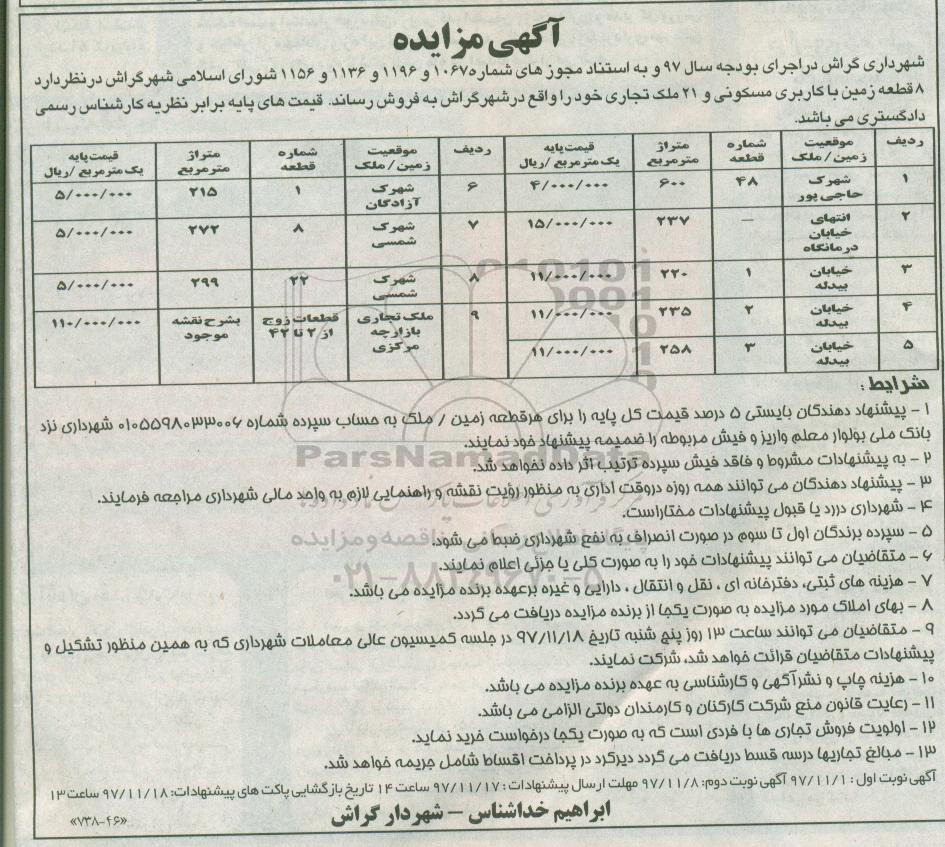 آگهی مزایده
شهرداری گراش در اجرای بودجه سال ۹۷ و به استناد مجوز های شماره ۱۰۶۷ و ۱۱۹۶ و ۱۱۳۶ و ۱۱۵۶ شورای اسلامی شهر گراش در نظر دارد
۸ قطعه زمین با کاربری مسکونی و ۲۱ ملک تجاری خود را واقع در شهر گراش به فروش رساند. قیمت های پایه برابر نظریه کارشناس رسمی
دادگستری می باشد.
ردیف | موقعیت زمین / ملک | شماره قطعه | متراژ مترمربع | قیمت پایه یک مترمربع / ریال | ردیف | موقعیت زمین / ملک | شماره قطعه | متراژ مترمربع | قیمت پایه یک مترمربع / ریال
۱ | شهرک حاجی پور | ۴۸ | ۶۰۰ | ۴/۰۰۰/۰۰۰ | ۶ | شهرک آزادگان | ۱ | ۲۱۵ | ۵/۰۰۰/۰۰۰
۲ | انتهای خیابان درمانگاه | — | ۲۳۷ | ۱۵/۰۰۰/۰۰۰ | ۷ | شهرک شمسی | ۸ | ۲۷۲ | ۵/۰۰۰/۰۰۰
۳ | خیابان بیدله | ۱ | ۲۲۰ | ۱۱/۰۰۰/۰۰۰ | ۸ | شهرک شمسی | ۲۲ | ۲۹۹ | ۵/۰۰۰/۰۰۰
۴ | خیابان بیدله | ۲ | ۲۳۵ | ۱۱/۰۰۰/۰۰۰ | ۹ | ملک تجاری بازارچه مرکزی | قطعات زوج از ۲ تا ۴۲ | بشرح نقشه موجود | ۱۱۰/۰۰۰/۰۰۰
۵ | خیابان بیدله | ۳ | ۲۵۸ | ۱۱/۰۰۰/۰۰۰
شرایط :
۱ - پیشنهاد دهندگان بایستی ۵ درصد قیمت کل پایه را برای هر قطعه زمین / ملک به حساب سپرده شماره ۰۱۰۵۵۹۸۰۳۳۰۰۶ شهرداری نزد
بانک ملی بولوار معلم واریز و فیش مربوطه را ضمیمه پیشنهاد خود نمایند.
۲ - به پیشنهادات مشروط و فاقد فیش سپرده ترتیب اثر داده نخواهد شد.
۳ - پیشنهاد دهندگان می توانند همه روزه در وقت اداری به منظور رؤیت نقشه و راهنمایی لازم به واحد مالی شهرداری مراجعه فرمایند.
۴ - شهرداری در رد یا قبول پیشنهادات مختار است.
۵ - سپرده برندگان اول تا سوم در صورت انصراف به نفع شهرداری ضبط می شود.
۶ - متقاضیان می توانند پیشنهادات خود را به صورت کلی یا جزئی اعلام نمایند.
۷ - هزینه های ثبتی، دفترخانه ای ، نقل و انتقال ، دارایی و غیره بر عهده برنده مزایده می باشد.
۸ - بهای املاک مورد مزایده به صورت یکجا از برنده مزایده دریافت می گردد.
۹ - متقاضیان می توانند ساعت ۱۳ روز پنج شنبه تاریخ ۹۷/۱۱/۱۸ در جلسه کمیسیون عالی معاملات شهرداری که به همین منظور تشکیل و
پیشنهادات متقاضیان قرائت خواهد شد، شرکت نمایند.
۱۰ - هزینه چاپ و نشر آگهی و کارشناسی به عهده برنده مزایده می باشد.
۱۱ - رعایت قانون منع شرکت کارکنان و کارمندان دولتی الزامی می باشد.
۱۲ - اولویت فروش تجاری ها با فردی است که به صورت یکجا درخواست خرید نماید.
۱۳ - مبالغ تجاریها در سه قسط دریافت می گردد دیرکرد در پرداخت اقساط شامل جریمه خواهد شد.
آگهی نوبت اول : ۹۷/۱۱/۱ آگهی نوبت دوم: ۹۷/۱۱/۸ مهلت ارسال پیشنهادات : ۹۷/۱۱/۱۷ ساعت ۱۴ تاریخ بازگشایی پاکت های پیشنهادات: ۹۷/۱۱/۱۸ ساعت ۱۳
ابراهیم خداشناس - شهردار گراش
«۷۳۸-۴۶»
ParsNamadData
پایگاه اطلاع رسانی مناقصه و مزایده
۰۲۱-۸۸۳۴۹۶۷۰-۵